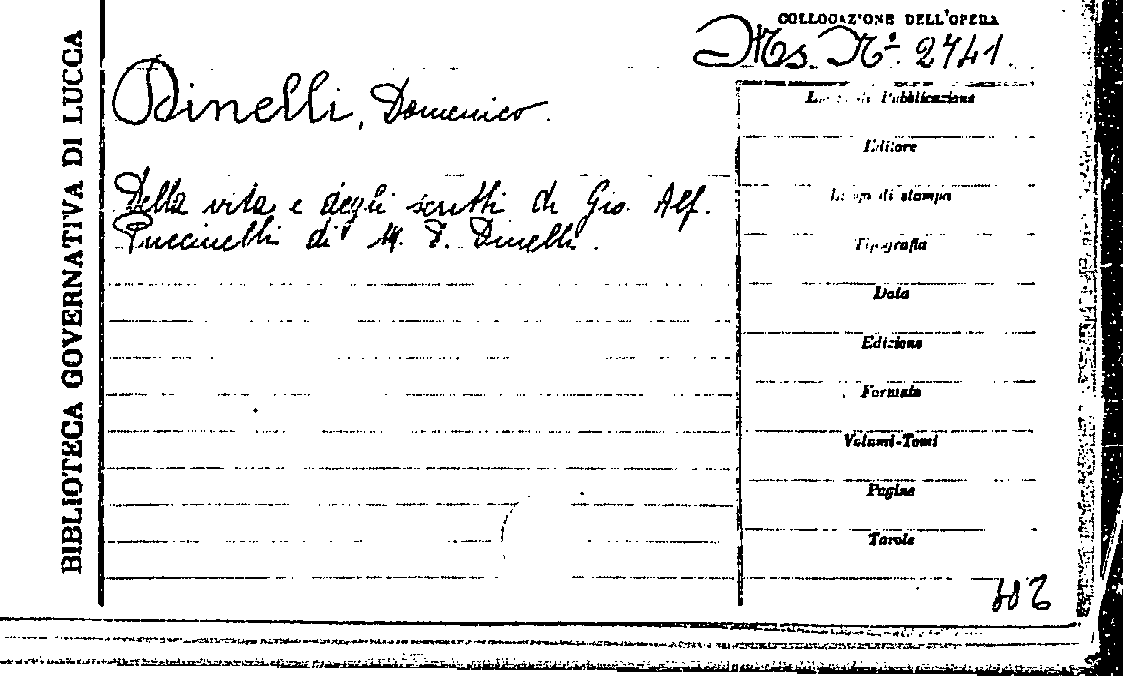 BIBLIOTECA GOVERNATIVA DI LUCCA
COLLOCAZIONE DELL'OPERA
Ms. Nº. 2741.
Dinelli, Domenico.
Della vita e degli scritti di Gio. Alf.
Puccinelli di M. D. Dinelli.
Luogo di Pubblicazione
Editore
Luogo di stampa
Tipografia
Data
Edizione
Formato
Volumi-Tomi
Pagine
Tavole